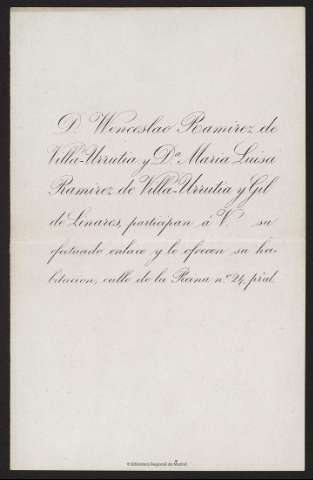 D. Wenceslao Ramírez de
Villa-Urrutia y D.ª María Luisa
Ramírez de Villa-Urrutia y Gil
de Linares, participan á V. su
efectuado enlace y le ofrecen su ha-
bitacion, calle de la Reina n.º 24, pral.
© Biblioteca Regional de Madrid